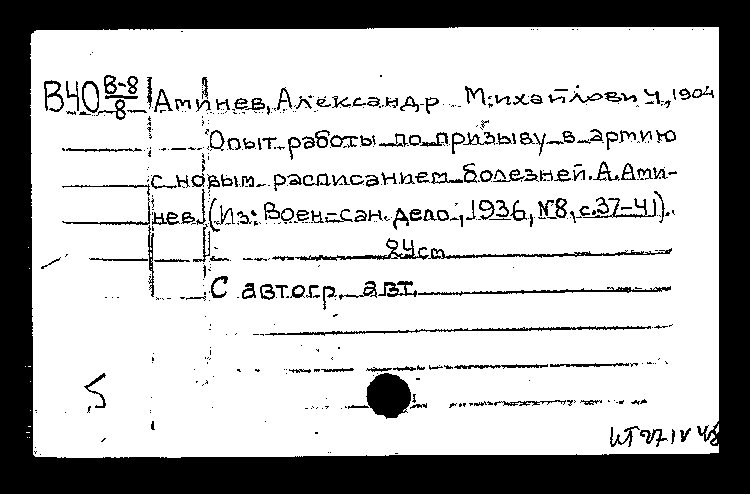 В40 В-8/8 Аминев, Александр Михайлович, 1904
Опыт работы по призыву в армию
с новым расписанием болезней. А. Ами-
нев. (Из: Воен-сан. дело, 1936, №8, с.37-41).
24cm
С автогр. авт.
27 IV 48